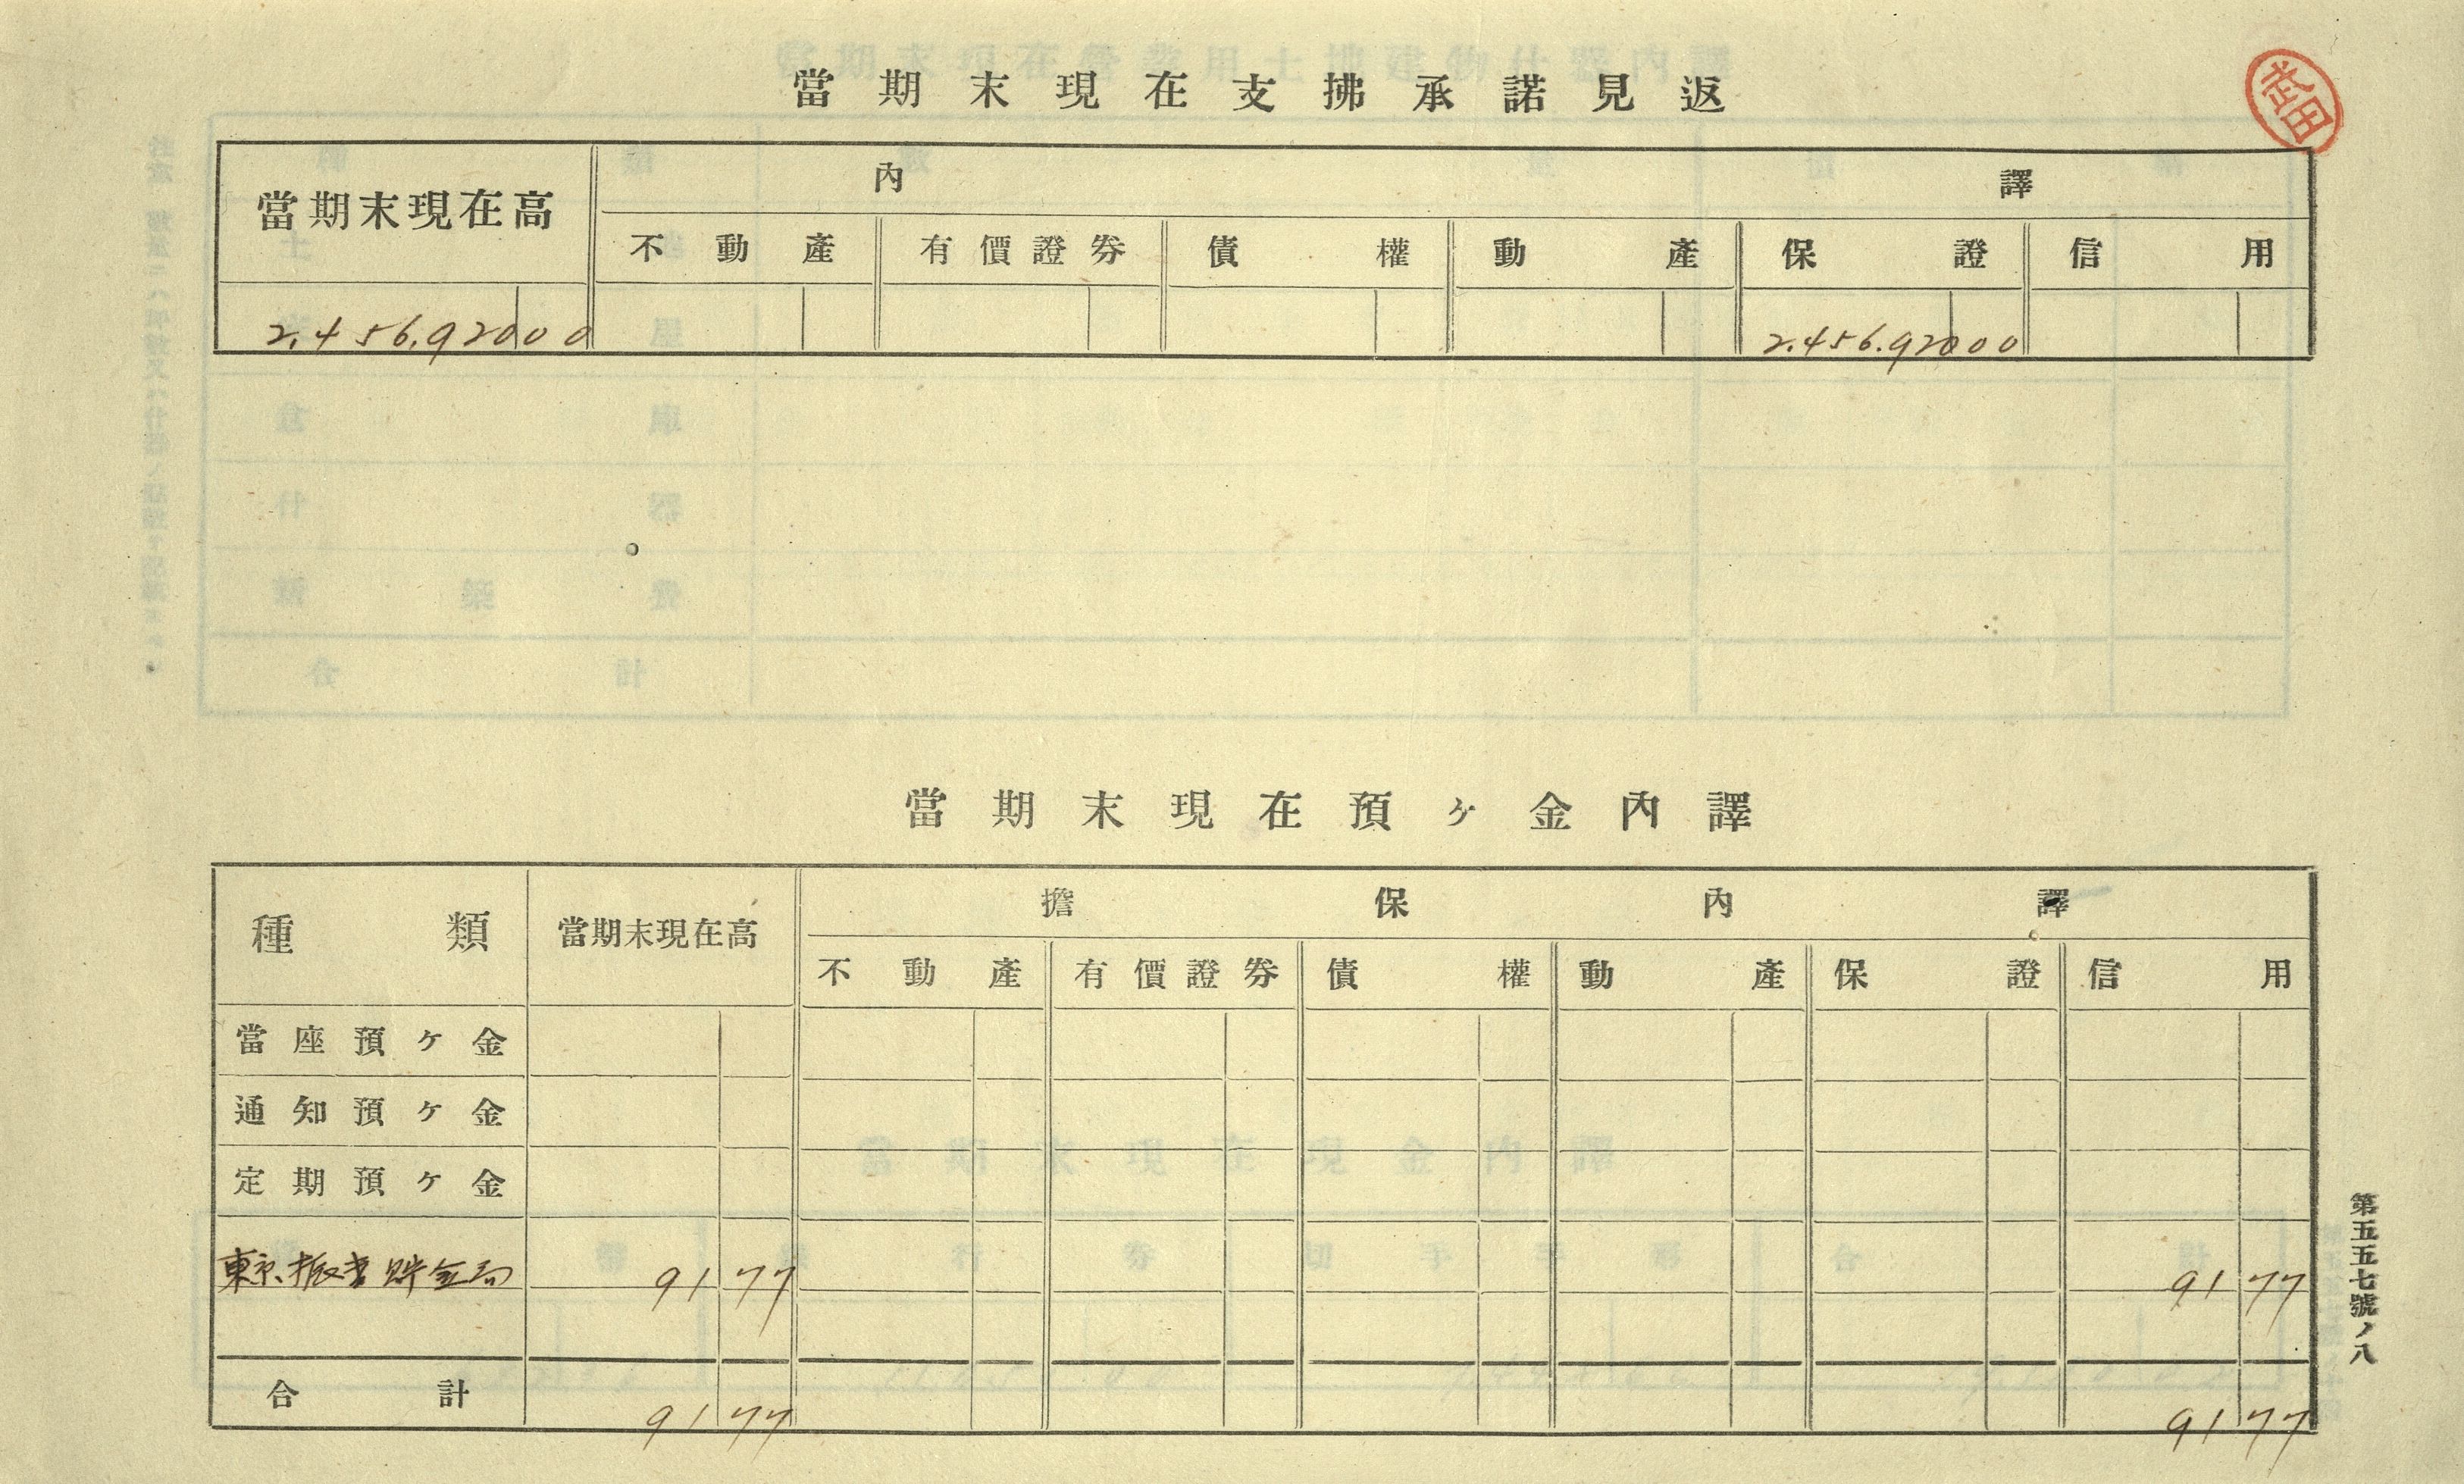 當期末現在支拂承諾見返
當期末現在高 內譯
不動產 有價證券 債權 動產 保證 信用
2.456.920 00 2.456.920 00
當期末現在預ヶ金內譯
種類 當期末現在高 擔保內譯
不動產 有價證券 債權 動產 保證 信用
當座預ヶ金
通知預ヶ金
定期預ヶ金
東京振替貯金局 91 77 91 77
合計 91 77 91 77
第五五七號ノ八